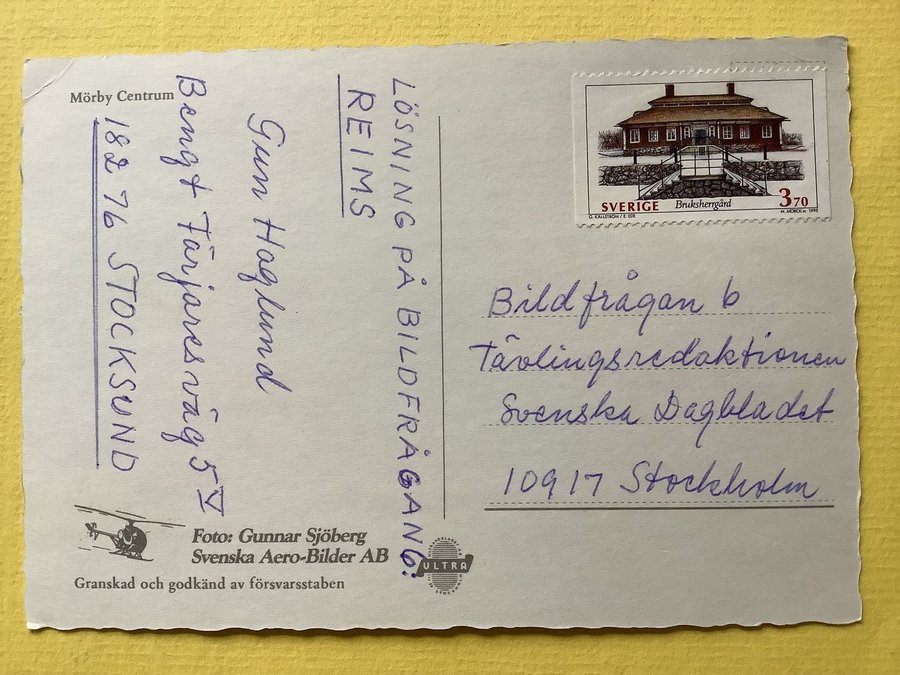 Mörby Centrum
LÖSNING PÅ BILDFRÅGAN 6:
REIMS
Gun Haglund
Bengt Färjares väg 5 V
182 76 STOCKSUND
SVERIGE Bruksherrgård 3 70
G. KÄLLSTRÖM / E. EDE M. MÖRCK sc 1995
Bildfrågan 6
Tävlingsredaktionen
Svenska Dagbladet
10917 Stockholm
Foto: Gunnar Sjöberg
Svenska Aero-Bilder AB
Granskad och godkänd av försvarsstaben
ULTRA